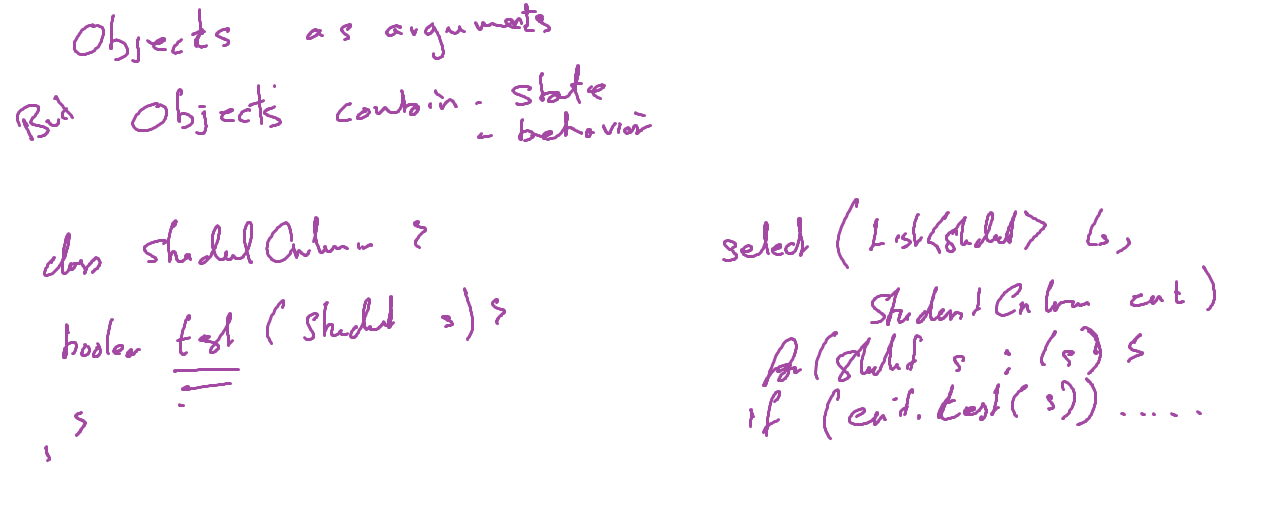 Objects as arguments
But Objects contain - state
- behavior
class Student {
boolean test (Student s) {
}
}
select (List<Student> ls,
Student crit)
for (Student s : ls) {
if (crit.test(s)) .....